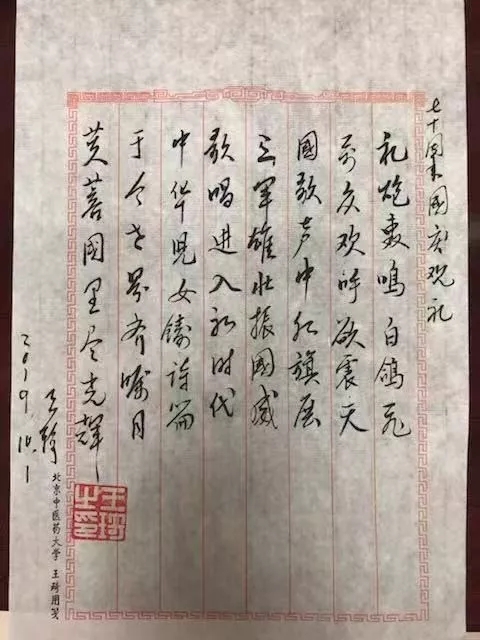 七十周年國庆观礼
礼炮轰鸣白鸽飞
万众欢呼欲震天
國歌声中红旗展
三军雄壮振國威
歌唱进入新时代
中华児女铸诗篇
于今世界齐瞩目
芙蓉國里尽光輝
王琦
2019.10.1
王琦之印
北京中医药大学 王琦用笺